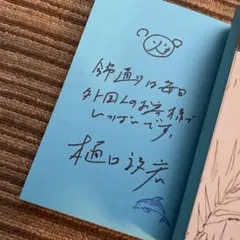 錦通りは毎日
外国人のお客様で
いっぱいです。
樋口